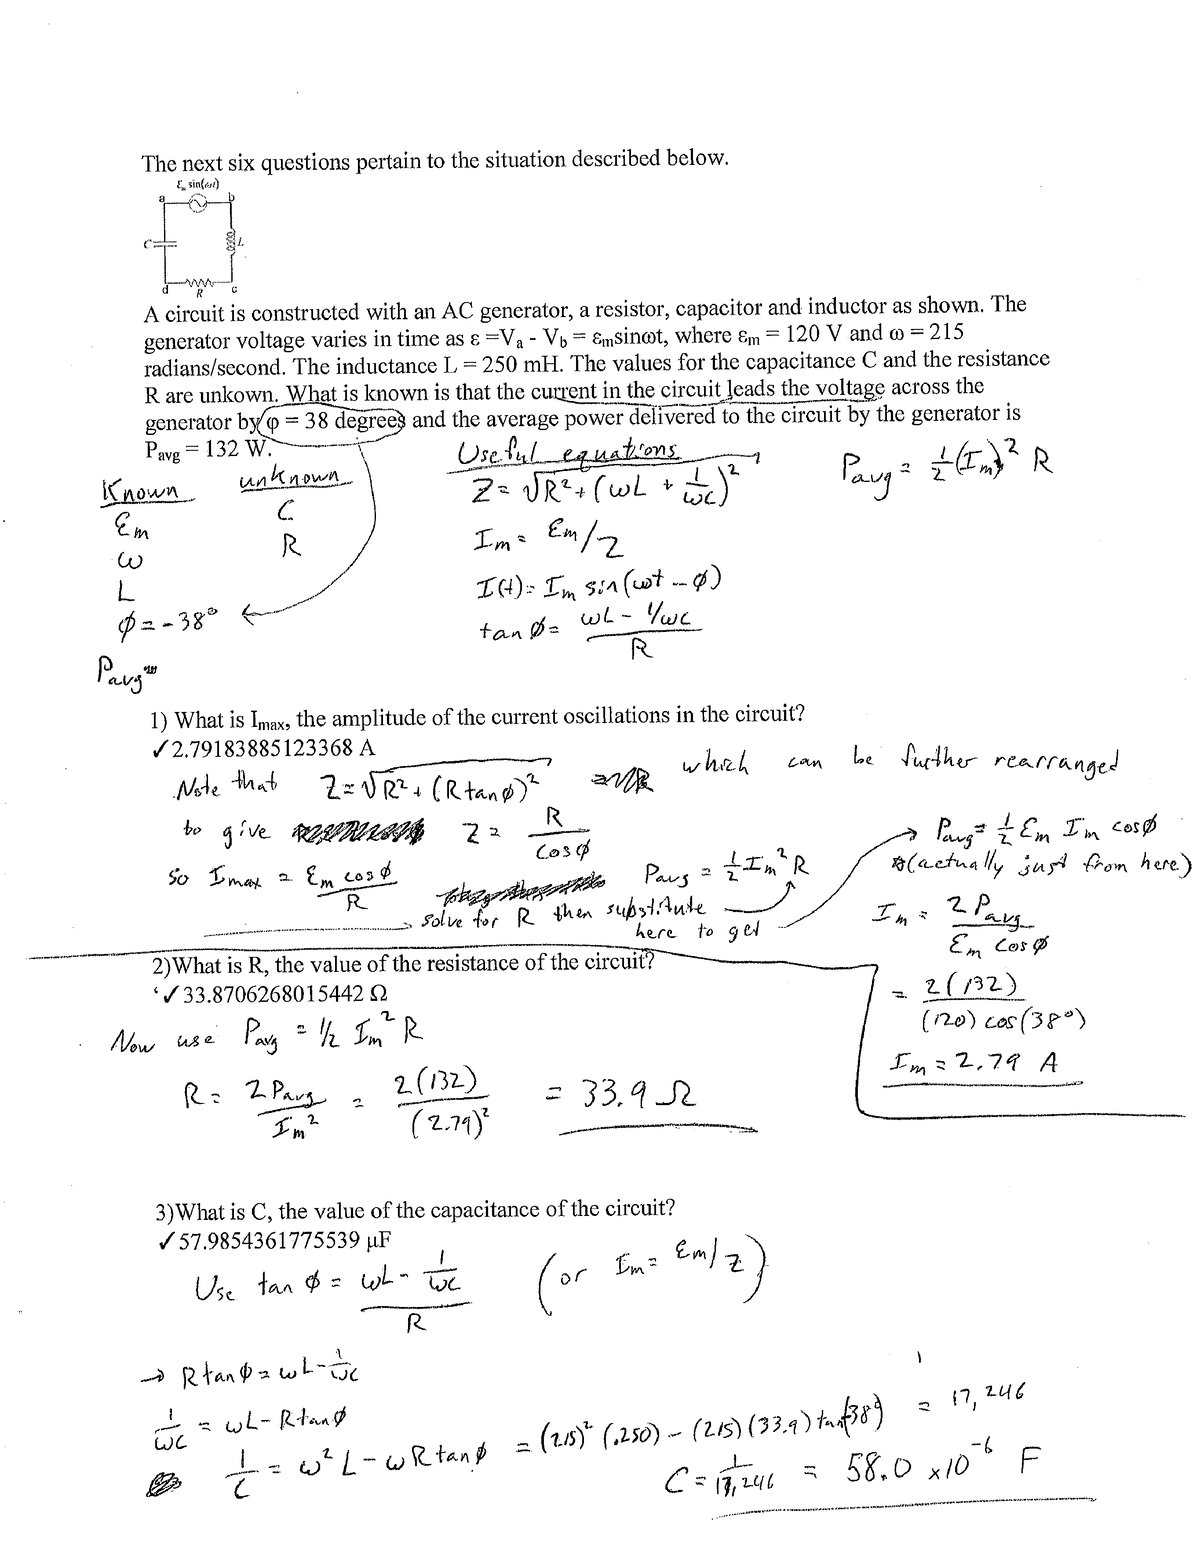 The next six questions pertain to the situation described below.
ℰm sin(ωt)
a b
C L
d R c
A circuit is constructed with an AC generator, a resistor, capacitor and inductor as shown. The
generator voltage varies in time as ε =Va - Vb = εmsinωt, where εm = 120 V and ω = 215
radians/second. The inductance L = 250 mH. The values for the capacitance C and the resistance
R are unkown. What is known is that the current in the circuit leads the voltage across the
generator by φ = 38 degrees and the average power delivered to the circuit by the generator is
Pavg = 132 W.
Useful equations
Known unknown
Z = √R² + (ωL + 1/ωC)²
Pavg = ½(Im)² R
Ɛm C
Im = Ɛm/Z
ω R
L
I(t) = Im sin(ωt - φ)
φ = -38°
tan φ = ωL - 1/ωC
R
Pavg
1) What is Imax, the amplitude of the current oscillations in the circuit?
✓2.79183885123368 A
Note that Z = √R² + (R tan φ)² which can be further rearranged
to give Z = R / cos φ
so Imax = Ɛm cos φ / R
Pavg = ½ Im² R
solve for R then substitute
here to get
Pavg = ½ Ɛm Im cos φ
(actually just from here)
Im = 2 Pavg / Ɛm cos φ
= 2(132) / (120) cos(38°)
Im = 2.79 A
2)What is R, the value of the resistance of the circuit?
✓33.8706268015442 Ω
Now use Pavg = 1/2 Im² R
R = 2 Pavg / Im² = 2(132) / (2.79)² = 33.9 Ω
3)What is C, the value of the capacitance of the circuit?
✓57.9854361775539 μF
Use tan φ = ωL - 1/ωC / R (or Im = Ɛm/Z)
→ R tan φ = ωL - 1/ωC
1/ωC = ωL - R tan φ
1/C = ω² L - ωR tan φ = (215)² (.250) - (215)(33.9) tan(-38°) = 17,246
C = 1/17,246 = 58.0 x10⁻⁶ F